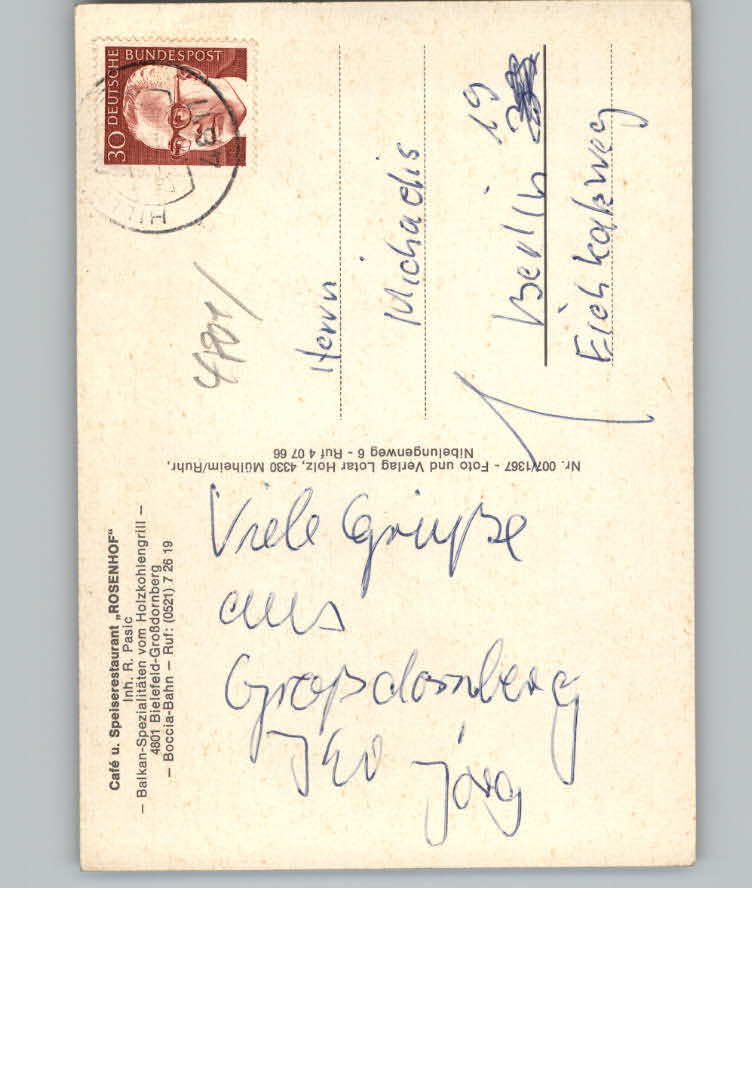 Café u. Speiserestaurant „ROSENHOF“
Inh. R. Pasic
– Balkan-Spezialitäten vom Holzkohlengrill –
4801 Bielefeld-Großdornberg
– Boccia-Bahn – Ruf: (0521) 7 26 19
Viele Grüße
aus
Großdornberg
Jörg
Nr. 007/1367 - Foto und Verlag Lotar Holz, 4330 Mülheim/Ruhr,
Nibelungenweg 6 - Ruf 4 07 66
30 DEUTSCHE BUNDESPOST
4801
Herrn
Michaelis
Berlin 19
Eichkatzweg